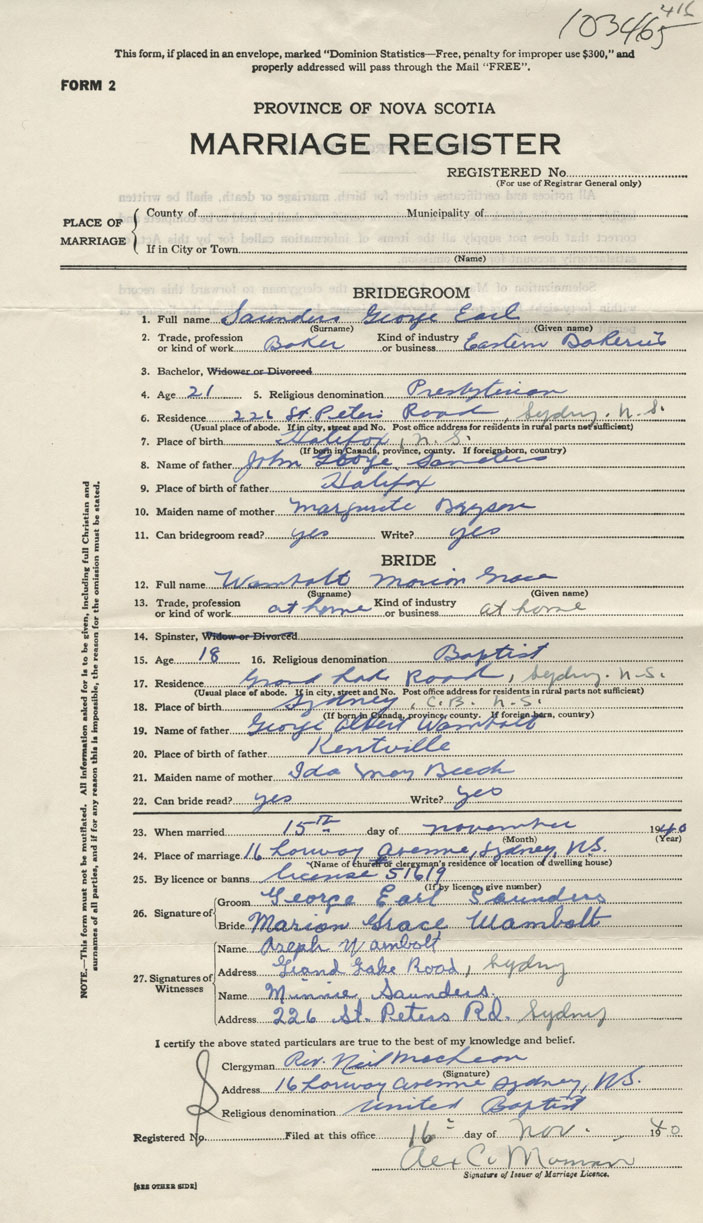 103465
This form, if placed in an envelope, marked "Dominion Statistics—Free, penalty for improper use $300," and
properly addressed will pass through the Mail "FREE".
FORM 2
PROVINCE OF NOVA SCOTIA
MARRIAGE REGISTER
REGISTERED No.
(For use of Registrar General only)
PLACE OF MARRIAGE
County of Municipality of
If in City or Town
(Name)
BRIDEGROOM
1. Full name Saunders George Earl
(Surname) (Given name)
2. Trade, profession or kind of work Baker Kind of industry or business Eastern Bakeries
3. Bachelor, Widower or Divorced
4. Age 21 5. Religious denomination Presbyterian
6. Residence 226 St. Peters Road, Sydney. N.S.
(Usual place of abode. If in city, street and No. Post office address for residents in rural parts not sufficient)
7. Place of birth Halifax, N.S.
(If born in Canada, province, county. If foreign born, country)
8. Name of father John George Sanders
9. Place of birth of father Halifax
10. Maiden name of mother Margurite Bryson
11. Can bridegroom read? yes Write? yes
BRIDE
12. Full name Wambolt Marion Grace
(Surname) (Given name)
13. Trade, profession or kind of work at home Kind of industry or business at home
14. Spinster, Widow or Divorced
15. Age 18 16. Religious denomination Baptist
17. Residence Grand Lake Road, Sydney. N.S.
(Usual place of abode. If in city, street and No. Post office address for residents in rural parts not sufficient)
18. Place of birth Sydney, C.B. N.S.
(If born in Canada, province, county. If foreign born, country)
19. Name of father George Albert Wambolt
20. Place of birth of father Kentville
21. Maiden name of mother Ida May Beech
22. Can bride read? yes Write? yes
23. When married 15th day of november 1940
(Month) (Year)
24. Place of marriage 16 Lorway Avenue, Sydney, N.S.
(Name of church or clergyman's residence or location of dwelling house)
25. By licence or banns License 51619
(If by licence, give number)
26. Signature of
Groom George Earl Saunders
Bride Marion Grace Wambolt
27. Signatures of Witnesses
Name Joseph Wambolt
Address Grand Lake Road, Sydney
Name Minnie Saunders.
Address 226 St. Peters Rd. Sydney
I certify the above stated particulars are true to the best of my knowledge and belief.
Clergyman Rev. Neil
(Signature)
Address 16 Lorway Avenue Sydney, N.S.
Religious denomination United Baptist
Registered No. Filed at this office 16 day of Nov. 1940
Signature of Issuer of Marriage Licence.
[SEE OTHER SIDE]
NOTE.—This form must not be mutilated. All information asked for is to be given, including full Christian and
surnames of all parties, and if for any reason this is impossible, the reason for the omission must be stated.